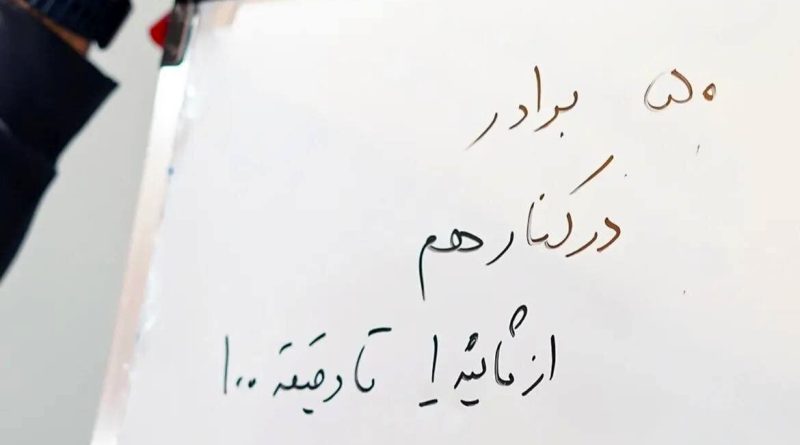 ۵۰ برادر
در کنار هم
از ثانیه ۱ تا دقیقه ۱۰۰